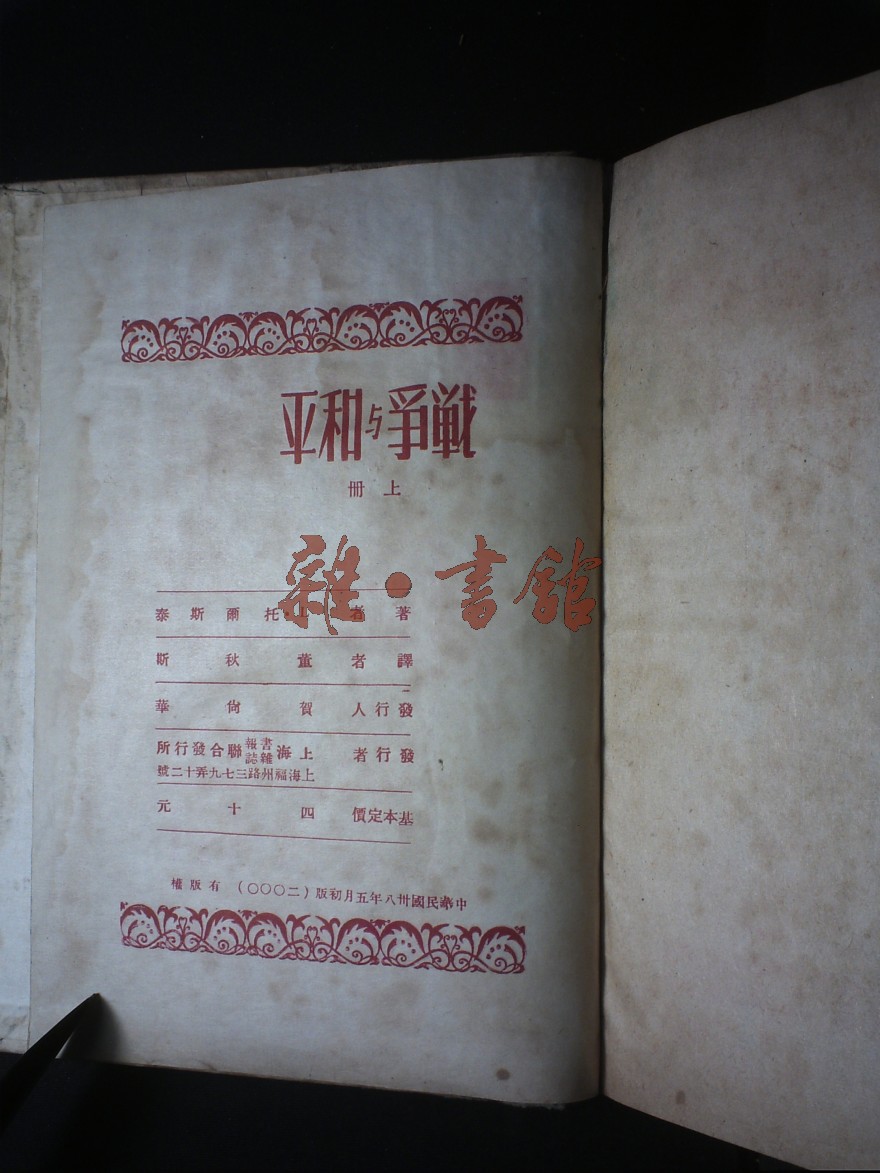 戰爭与和平
上冊
雜·書館
著者 托爾斯泰
譯者 董秋斯
發行人 賀尙華
發行者 上海書報雜誌聯合發行所
上海福州路三七九弄十二號
基本定價 四十元
中華民國卅八年五月初版(二〇〇〇) 有版權